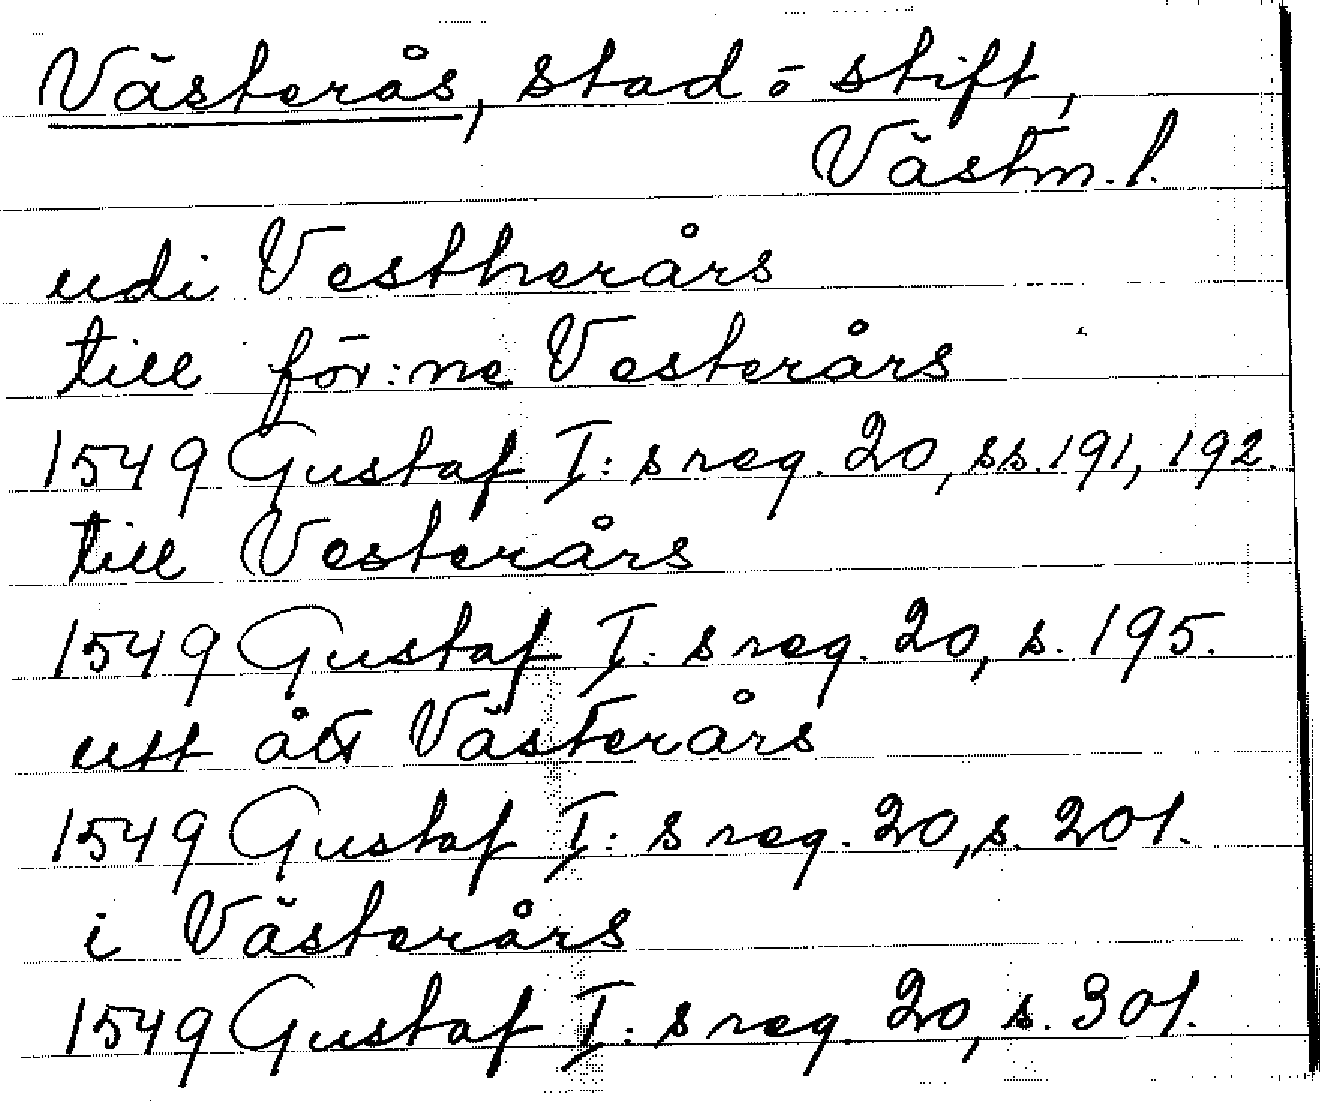 Västerås, stad o stift,
Västm. l.
udi Vestherårs
till för:ne Vesterårs
1549 Gustaf I: s reg. 20, ss. 191, 192.
till Vesterårs
1549 Gustaf I: s reg. 20, s. 195.
utt åt Västerårs
1549 Gustaf I: s reg. 20, s. 201.
i Västerårs
1549 Gustaf I: s reg. 20, s. 301.